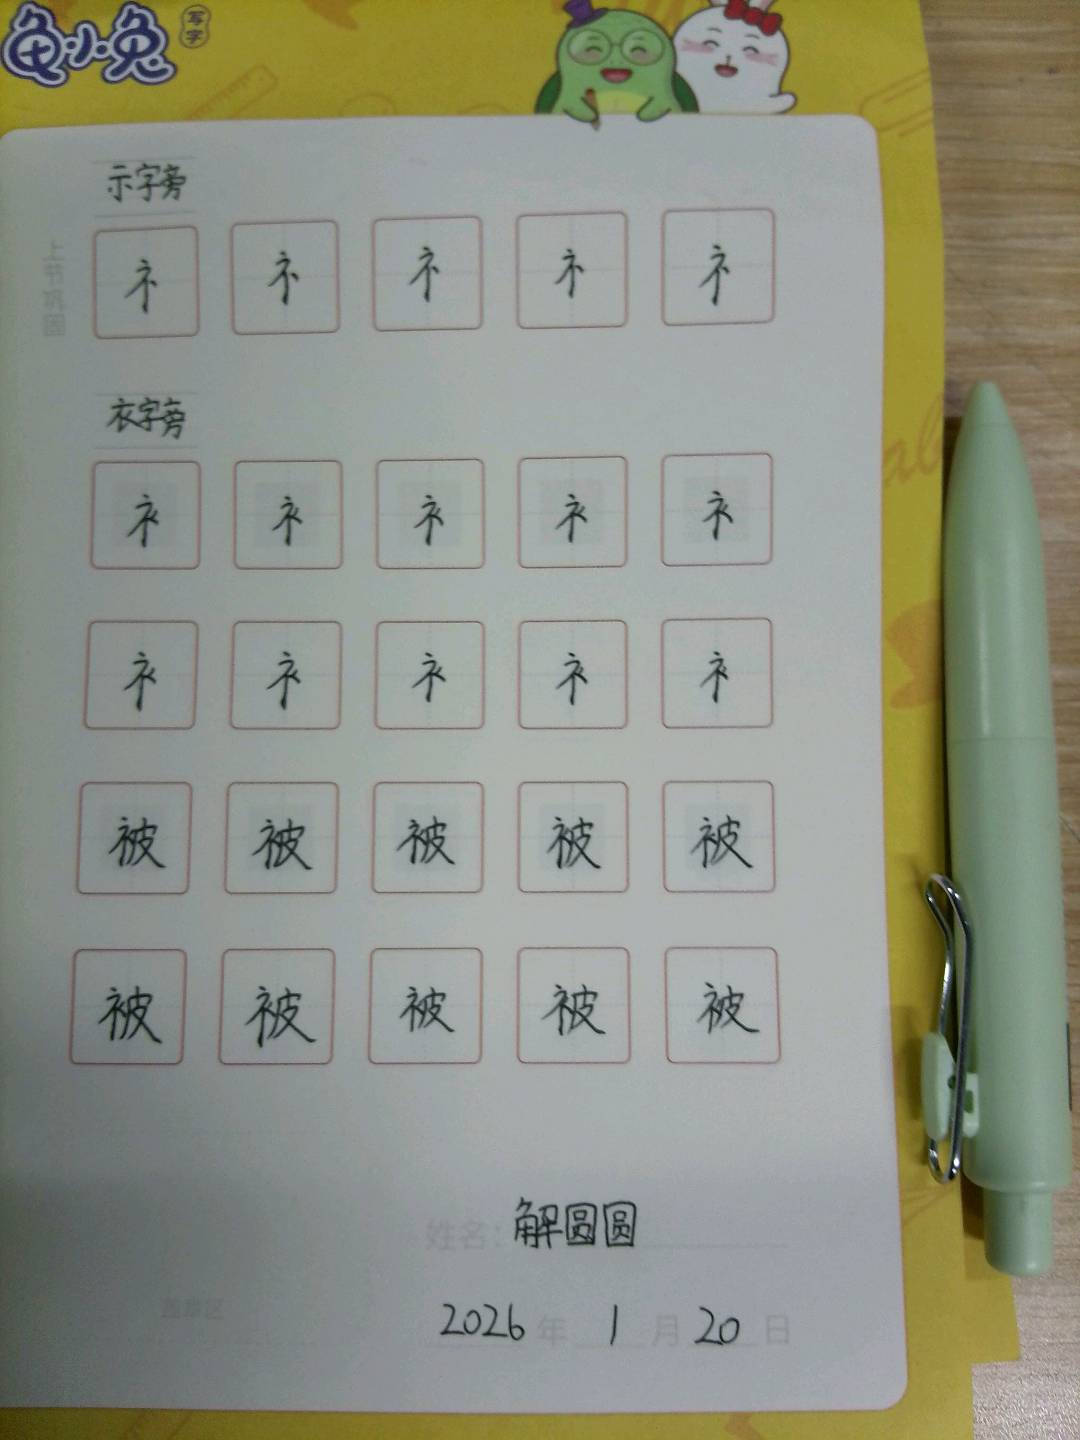 龟小兔
写字
示字旁
上节巩固
礻 礻 礻 礻 礻
衣字旁
衤 衤 衤 衤 衤
衤 衤 衤 衤 衤
被 被 被 被 被
被 被 被 被 被
姓名：解圆圆
盖章区
2026年 1月 20日